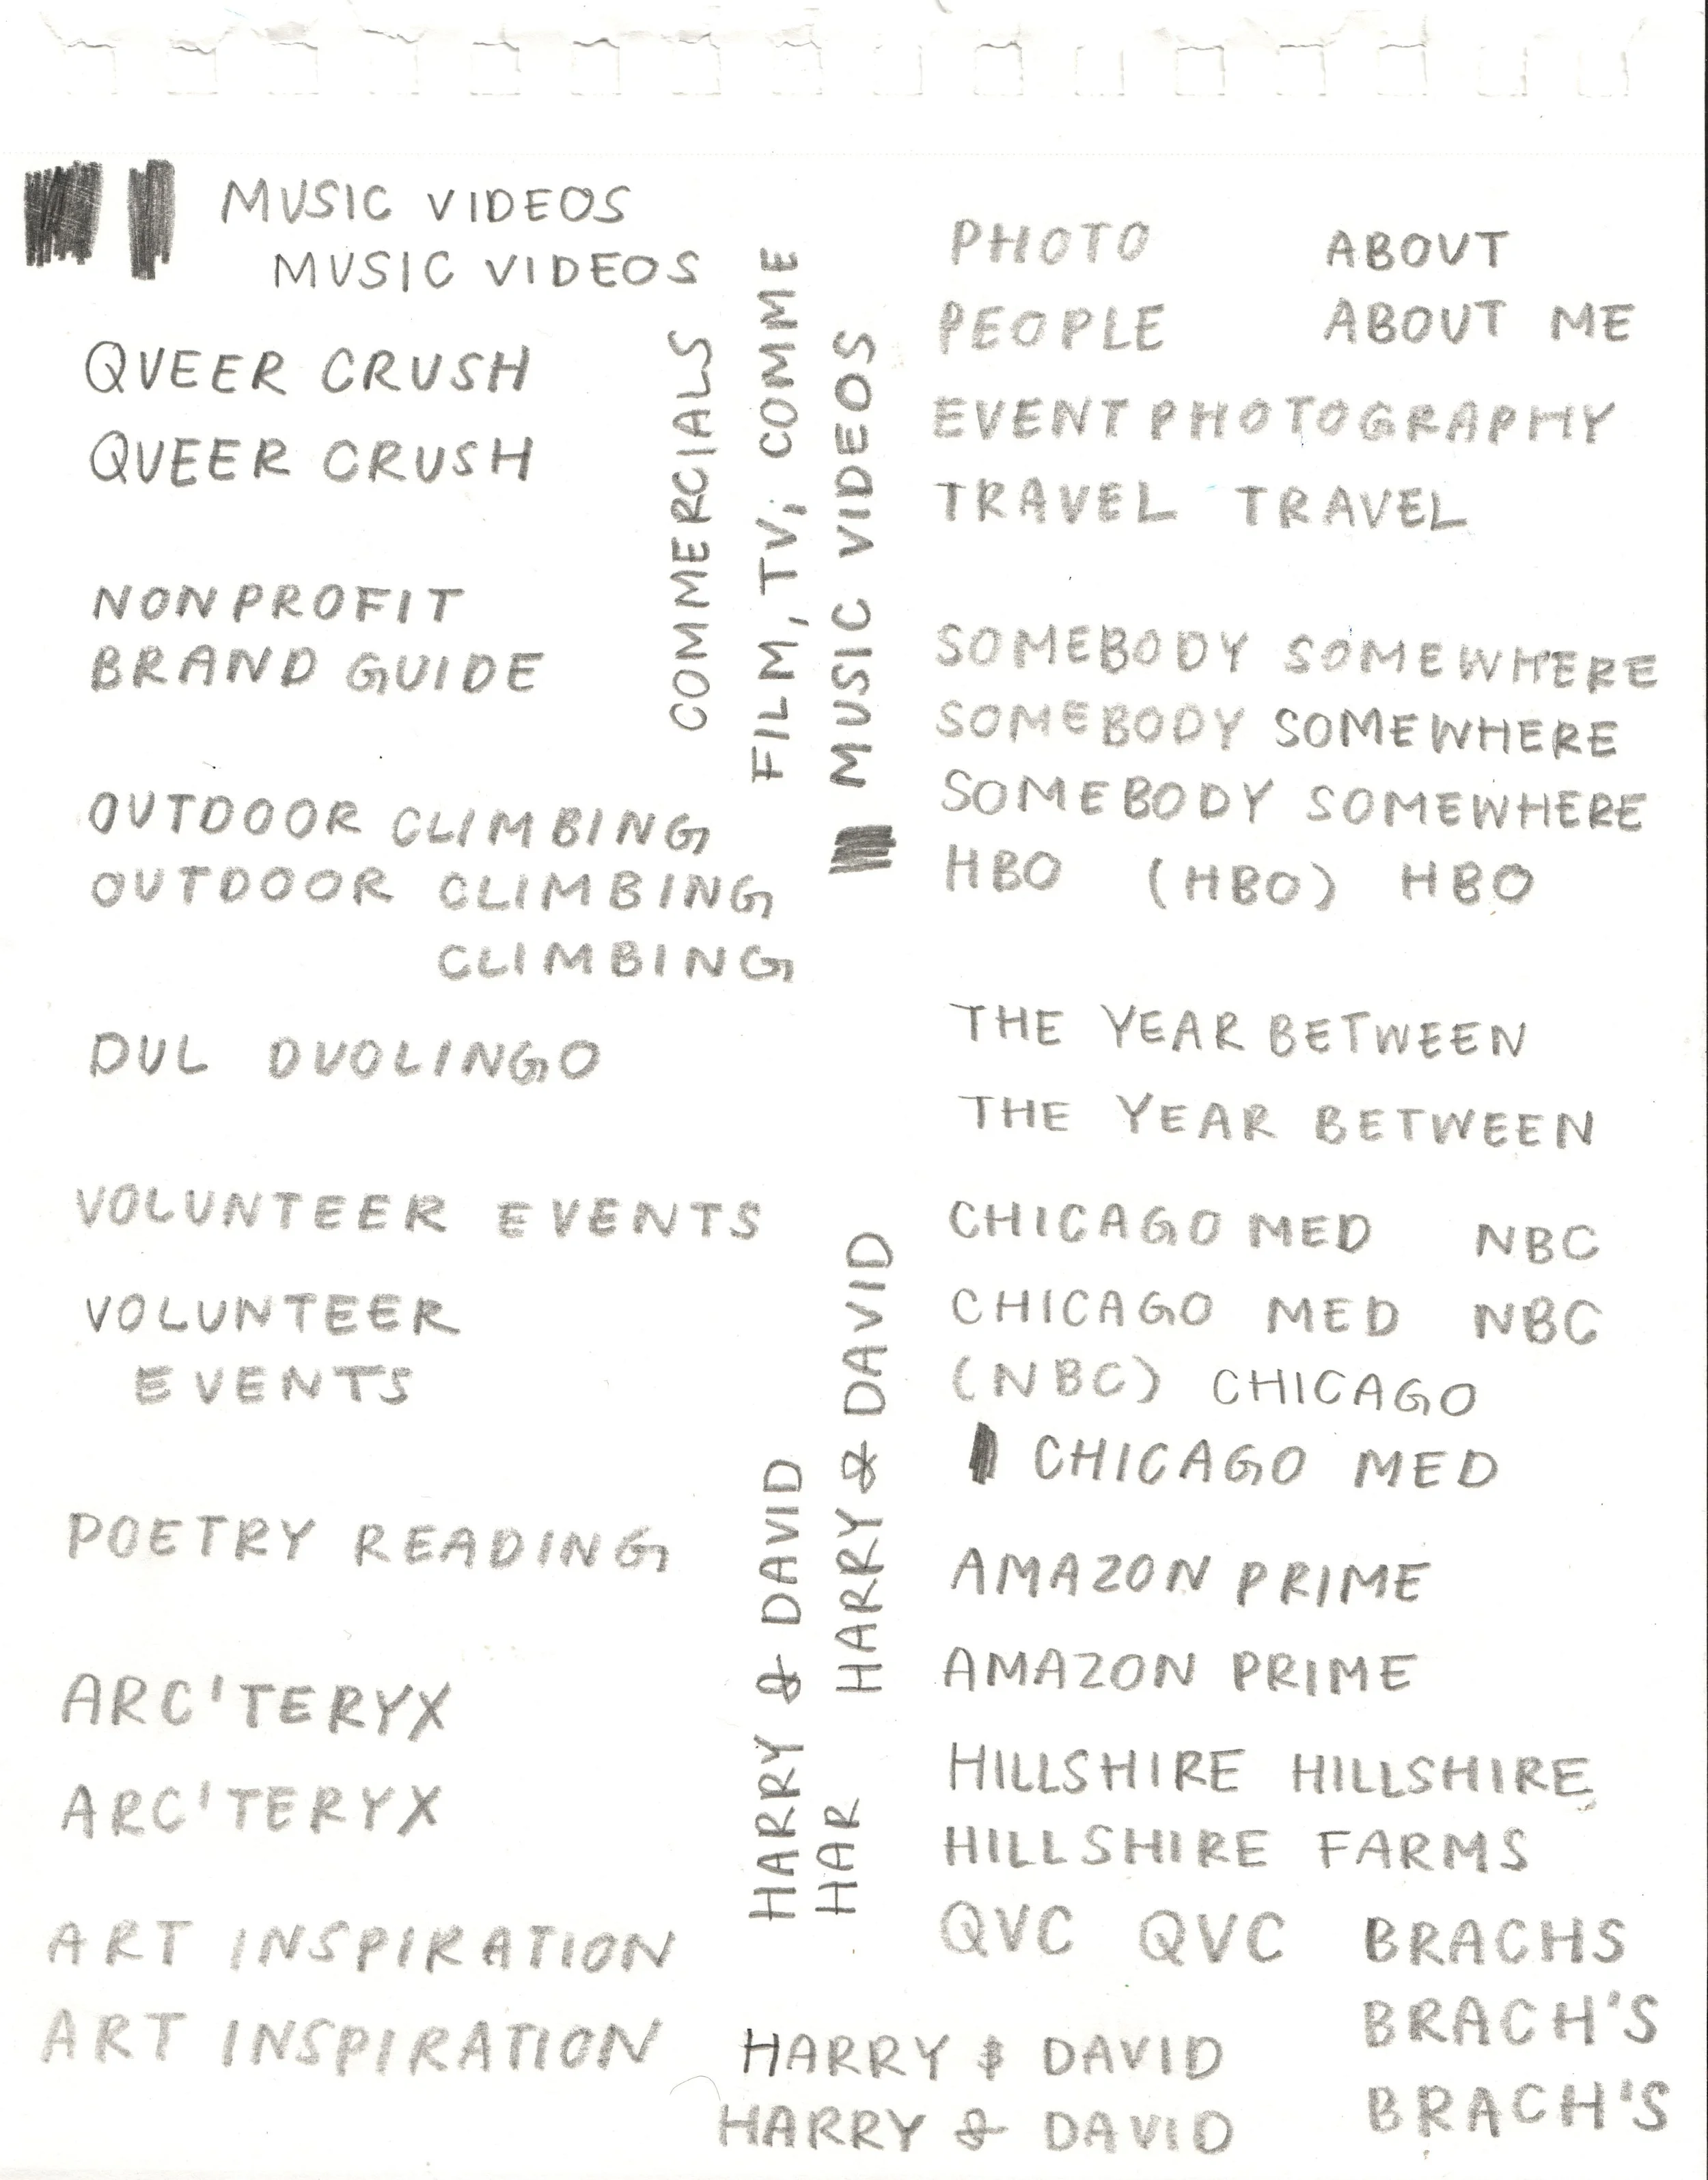 MUSIC VIDEOS
MUSIC VIDEOS
QUEER CRUSH
QUEER CRUSH
NONPROFIT
BRAND GUIDE
OUTDOOR CLIMBING
OUTDOOR CLIMBING
CLIMBING
DUL DUOLINGO
VOLUNTEER EVENTS
VOLUNTEER
EVENTS
POETRY READING
ARC'TERYX
ARC'TERYX
ART INSPIRATION
ART INSPIRATION
COMMERCIALS
FILM, TV, COMME
MUSIC VIDEOS
HARRY & DAVID
HARRY & DAVID
HAR
HARRY & DAVID
HARRY & DAVID
PHOTO ABOUT
PEOPLE ABOUT ME
EVENT PHOTOGRAPHY
TRAVEL TRAVEL
SOMEBODY SOMEWHERE
SOMEBODY SOMEWHERE
SOMEBODY SOMEWHERE
HBO (HBO) HBO
THE YEAR BETWEEN
THE YEAR BETWEEN
CHICAGO MED NBC
CHICAGO MED NBC
(NBC) CHICAGO
CHICAGO MED
AMAZON PRIME
AMAZON PRIME
HILLSHIRE HILLSHIRE
HILLSHIRE FARMS
QVC QVC BRACHS
BRACH'S
BRACH'S